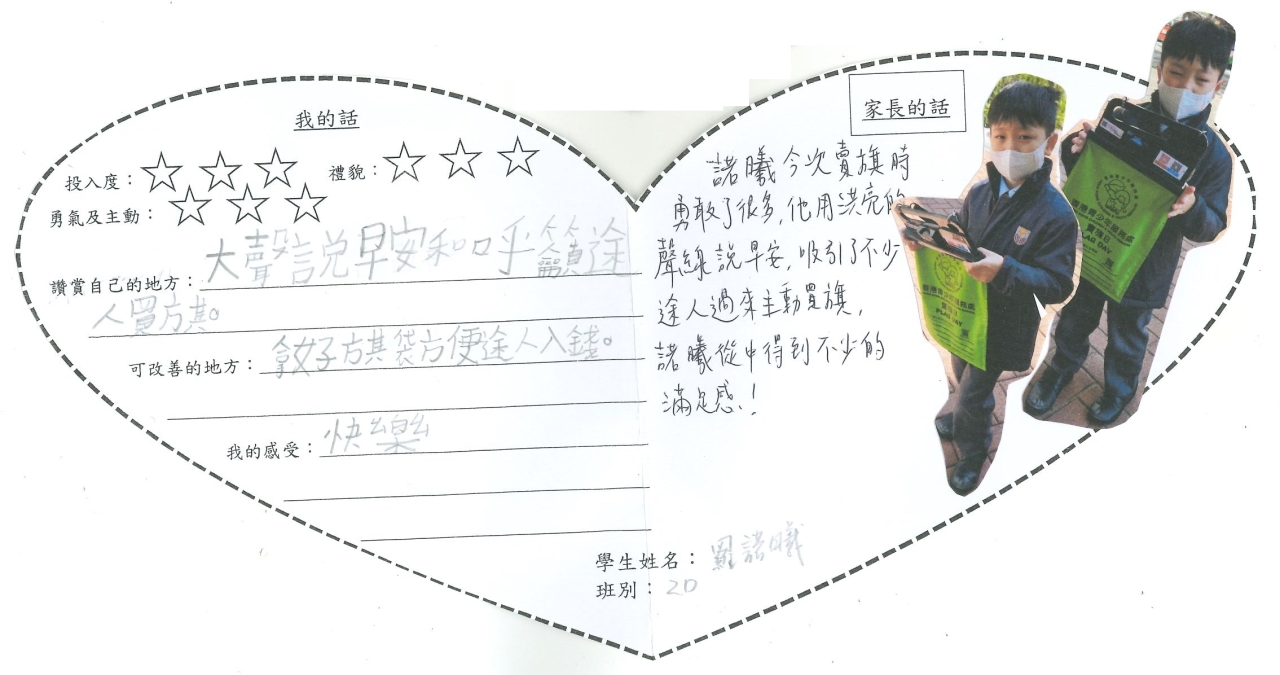 我的話
投入度：☆ ☆ ☆ 禮貌：☆ ☆ ☆
勇氣及主動：☆ ☆ ☆
讚賞自己的地方：大聲說早安和呼籲途
人買旗。
可改善的地方：拿好旗袋方便途人入錢。
我的感受：快樂
家長的話
諾曦今次賣旗時
勇敢了很多，他用洪亮的
聲線說早安，吸引了不少
途人過來主動買旗，
諾曦從中得到不少的
滿足感！
學生姓名：羅諾曦
班別：2D
賣旗日
FLAG DAY
賣旗日
FLAG DAY